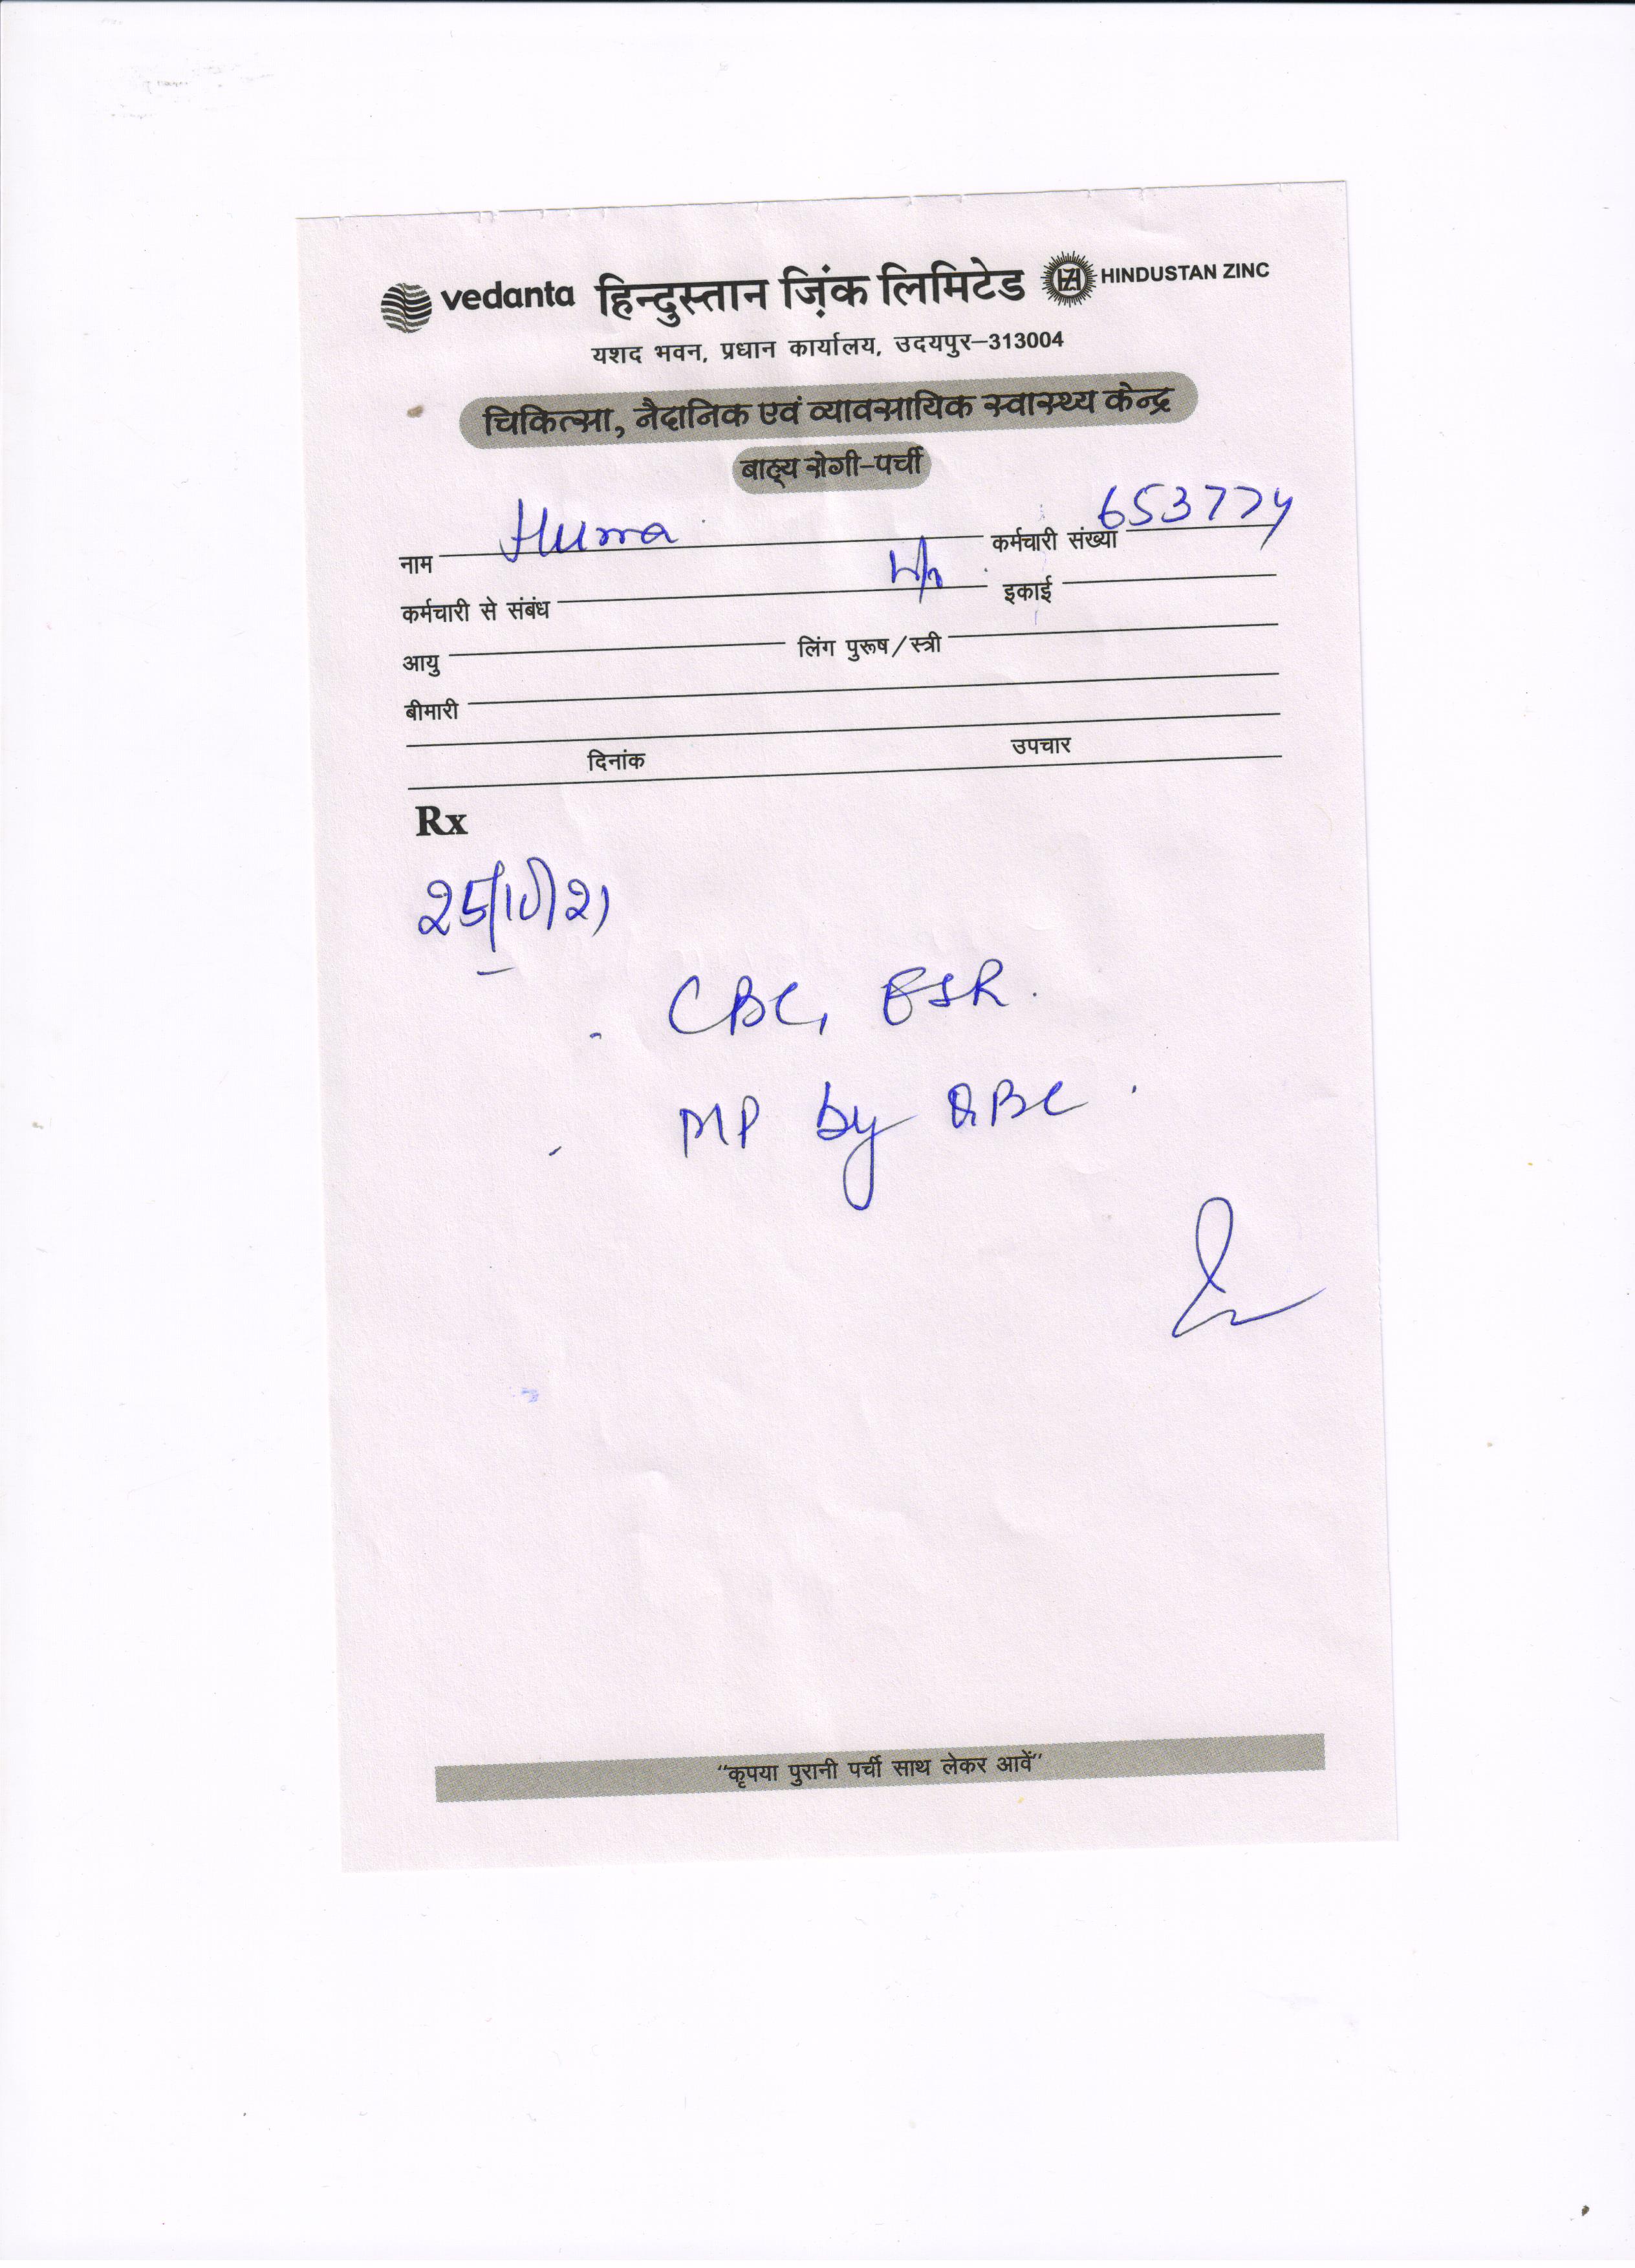 vedanta हिन्दुस्तान ज़िंक लिमिटेड HINDUSTAN ZINC
यशद भवन, प्रधान कार्यालय, उदयपुर–313004
चिकित्सा, नैदानिक एवं व्यावसायिक स्वास्थ्य केन्द्र
बाह्य रोगी-पर्ची
नाम Huma कर्मचारी संख्या 653774
कर्मचारी से संबंध इकाई
आयु लिंग पुरूष/स्त्री
बीमारी
दिनांक उपचार
Rx
25/10/21
CBC, ESR.
MP by QBC.
“कृपया पुरानी पर्ची साथ लेकर आवें”